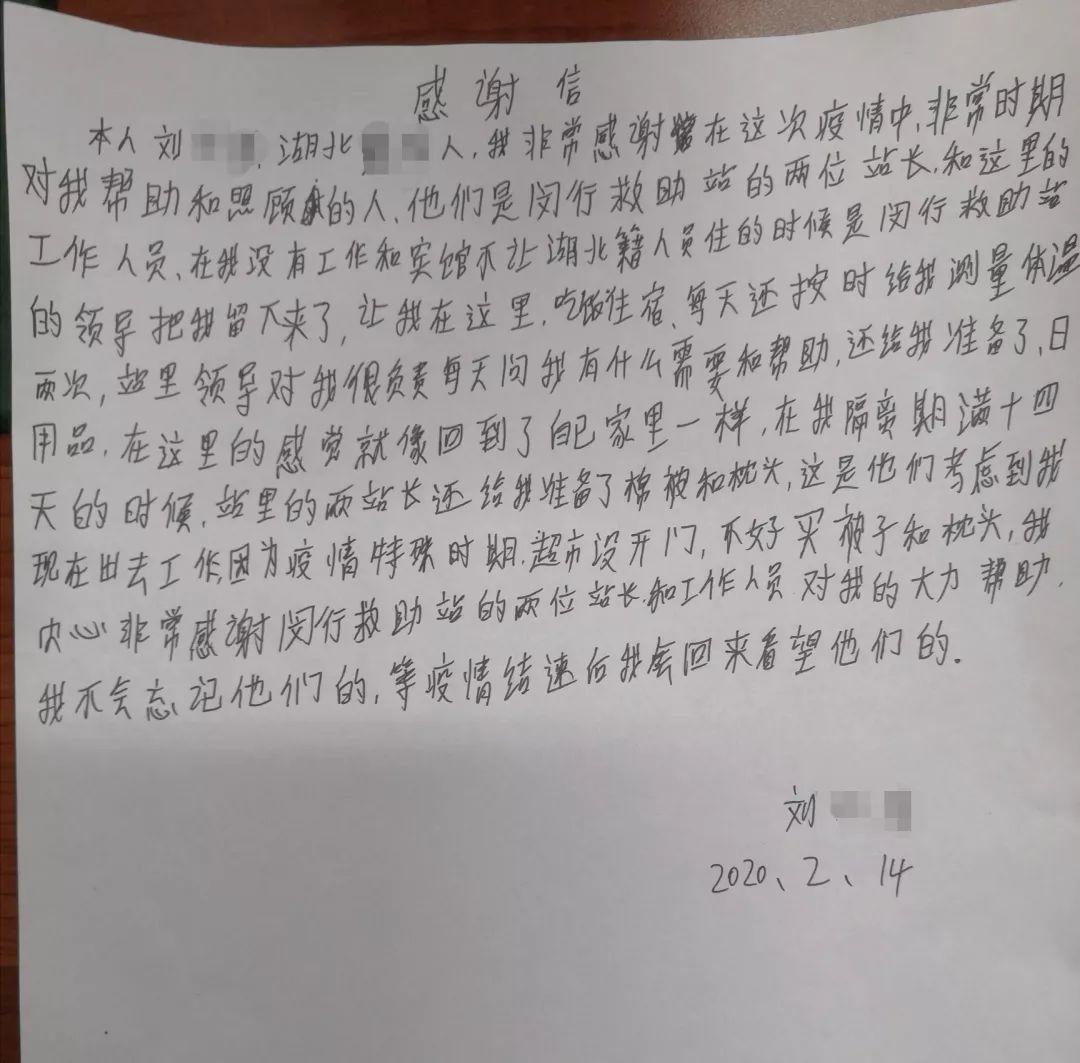 感谢信
本人刘 湖北 人,我非常感谢在这次疫情中,非常时期
对我帮助和照顾的人、他们是闵行救助站的两位站长,和这里的
工作人员、在我没有工作和宾馆不让湖北籍人员住的时候是闵行救助站
的领导把我留下来了,让我在这里,吃饭住宿、每天还按时给我测量体温
两次,站里领导对我很负责每天问我有什么需要和帮助,还给我准备了、日
用品,在这里的感觉就像回到了自己家里一样,在我隔离期满十四
天的时候,站里的两站长还给我准备了棉被和枕头,这是他们考虑到我
现在出去工作因为疫情特殊时期.超市没开门,不好买被子和枕头,我
内心非常感谢闵行救助站的两位站长和工作人员对我的大力帮助.
我不会忘记他们的,等疫情结速后我会回来看望他们的.
刘
2020、2、14